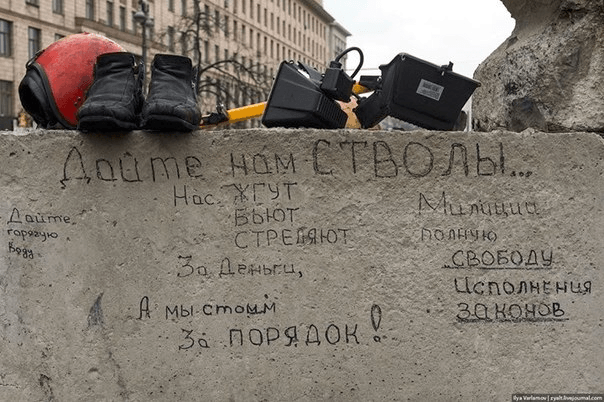 Дайте нам СТВОЛЫ...
Нас ЖГУТ
БЬЮТ
СТРЕЛЯЮТ
За Деньги,
А мы стоим
За ПОРЯДОК!
Дайте
горячую
воду.
Милиции
полную
СВОБОДУ
Исполнения
ЗАКОНОВ
Ilya Varlamov | zyalt.livejournal.com